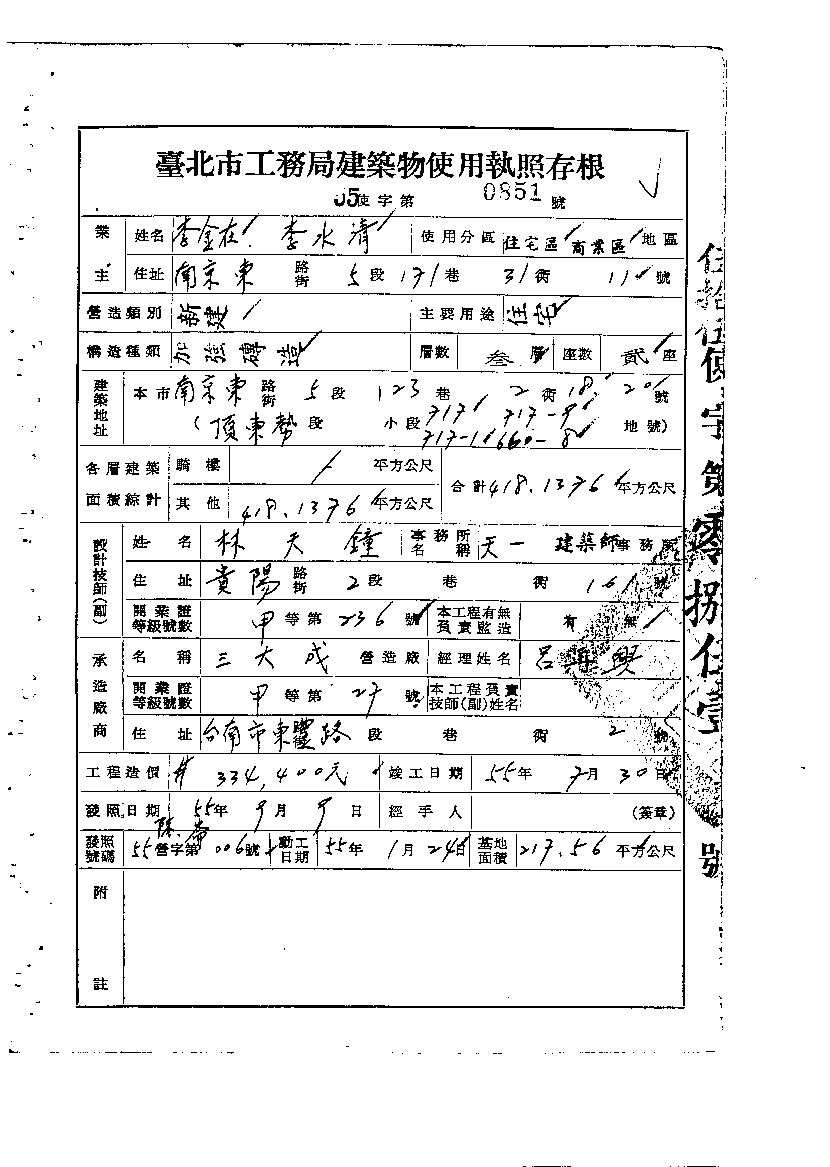 臺北市工務局建築物使用執照存根
55使字第 0851 號
業主 姓名 李金在 李水清 使用分區 住宅區 商業區 地區
住址 南京東 路街 5 段 171 巷 31 街 11 號
營造類別 新建 主要用途 住宅
構造種類 加強磚造 層數 叁 層 座數 貳 座
建築地址 本市 南京東 路街 5 段 123 巷 2 街 18. 20 號
(頂東勢 段 小段 717 717-9 地號)
717-1 660-8
各層建築面積綜計 騎樓 / 平方公尺 合計 418.1376 平方公尺
其他 418.1376 平方公尺
設計技師(副) 姓名 林天鐘 事務所名稱 天一 建築師事務所
住址 貴陽 路街 2 段 巷 街 161 號
開業證等級號數 甲 等第 236 號 本工程有無負責監造 有 無
承造廠商 名稱 三大成 營造廠 經理姓名 呂再興
開業證等級號數 甲 等第 27 號 本工程負責技師(副)姓名
住址 台南市東豐路 段 巷 街 2 號
工程造價 # 334,400元 竣工日期 55年 7月 30日
發照日期 55年 9月 9日 經手人 (簽章)
發照號碼 55營字第 006號 動工日期 55年 1月 24日 基地面積 217.56 平方公尺
附註
伍拾伍使字第零捌伍壹號